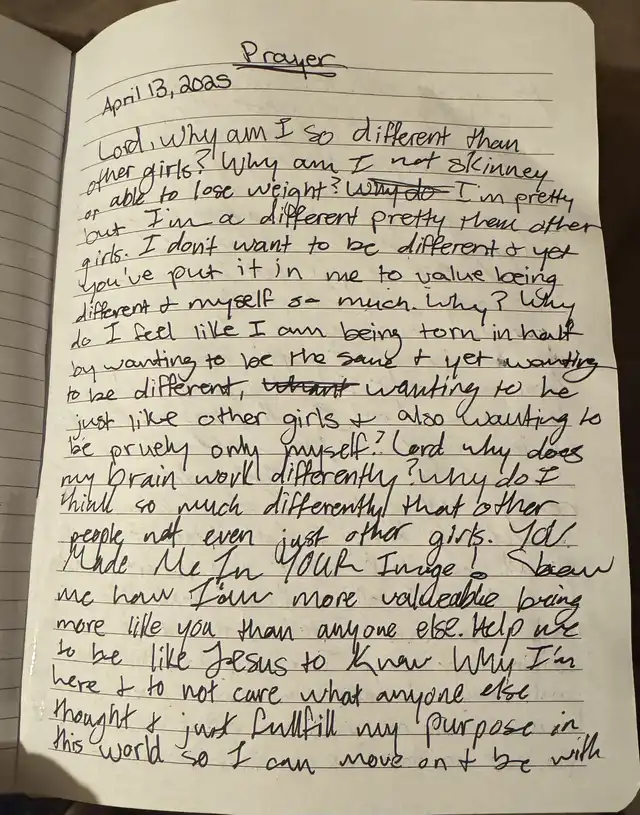 Prayer
April 13, 2025
Lord, Why am I so different than
other girls? Why am I not skinney
or able to lose weight? Why do I'm pretty
but I'm a different pretty them other
girls. I don't want to be different & yet
you've put it in me to value being
different & myself so much. Why? Why
do I feel like I am being torn in half
by wanting to be the same & yet wanting
to be different, whant wanting to be
just like other girls & also wanting to
be pruely only myself? Lord why does
my brain work differently? Why do I
think so much differently that other
people not even just other girls. YOU
Made Me In YOUR Image! Show
me how I'm more valueable being
more like you than anyone else. Help me
to be like Jesus to know Why I'm
here & to not care what anyone else
thought & just fullfill my purpose in
this world so I can move on & be with